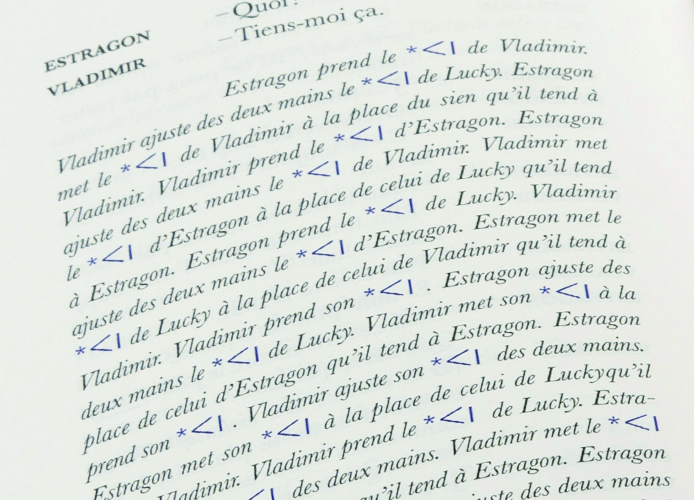 –Quoi?
ESTRAGON –Tiens-moi ça.
VLADIMIR
Estragon prend le *<| de Vladimir.
Vladimir ajuste des deux mains le *<| de Lucky. Estragon
met le *<| de Vladimir à la place du sien qu'il tend à
Vladimir. Vladimir prend le *<| d'Estragon. Estragon
ajuste des deux mains le *<| de Vladimir. Vladimir met
le *<| d'Estragon à la place de celui de Lucky qu'il tend
à Estragon. Estragon prend le *<| de Lucky. Vladimir
ajuste des deux mains le *<| d'Estragon. Estragon met le
*<| de Lucky à la place de celui de Vladimir qu'il tend à
Vladimir. Vladimir prend son *<| . Estragon ajuste des
deux mains le *<| de Lucky. Vladimir met son *<| à la
place de celui d'Estragon qu'il tend à Estragon. Estragon
prend son *<| . Vladimir ajuste son *<| des deux mains.
Estragon met son *<| à la place de celui de Luckyqu'il
Vladimir. Vladimir prend le *<| de Lucky. Estra-
*<| des deux mains. Vladimir met le *<|
qu'il tend à Estragon. Estragon
ajuste des deux mains